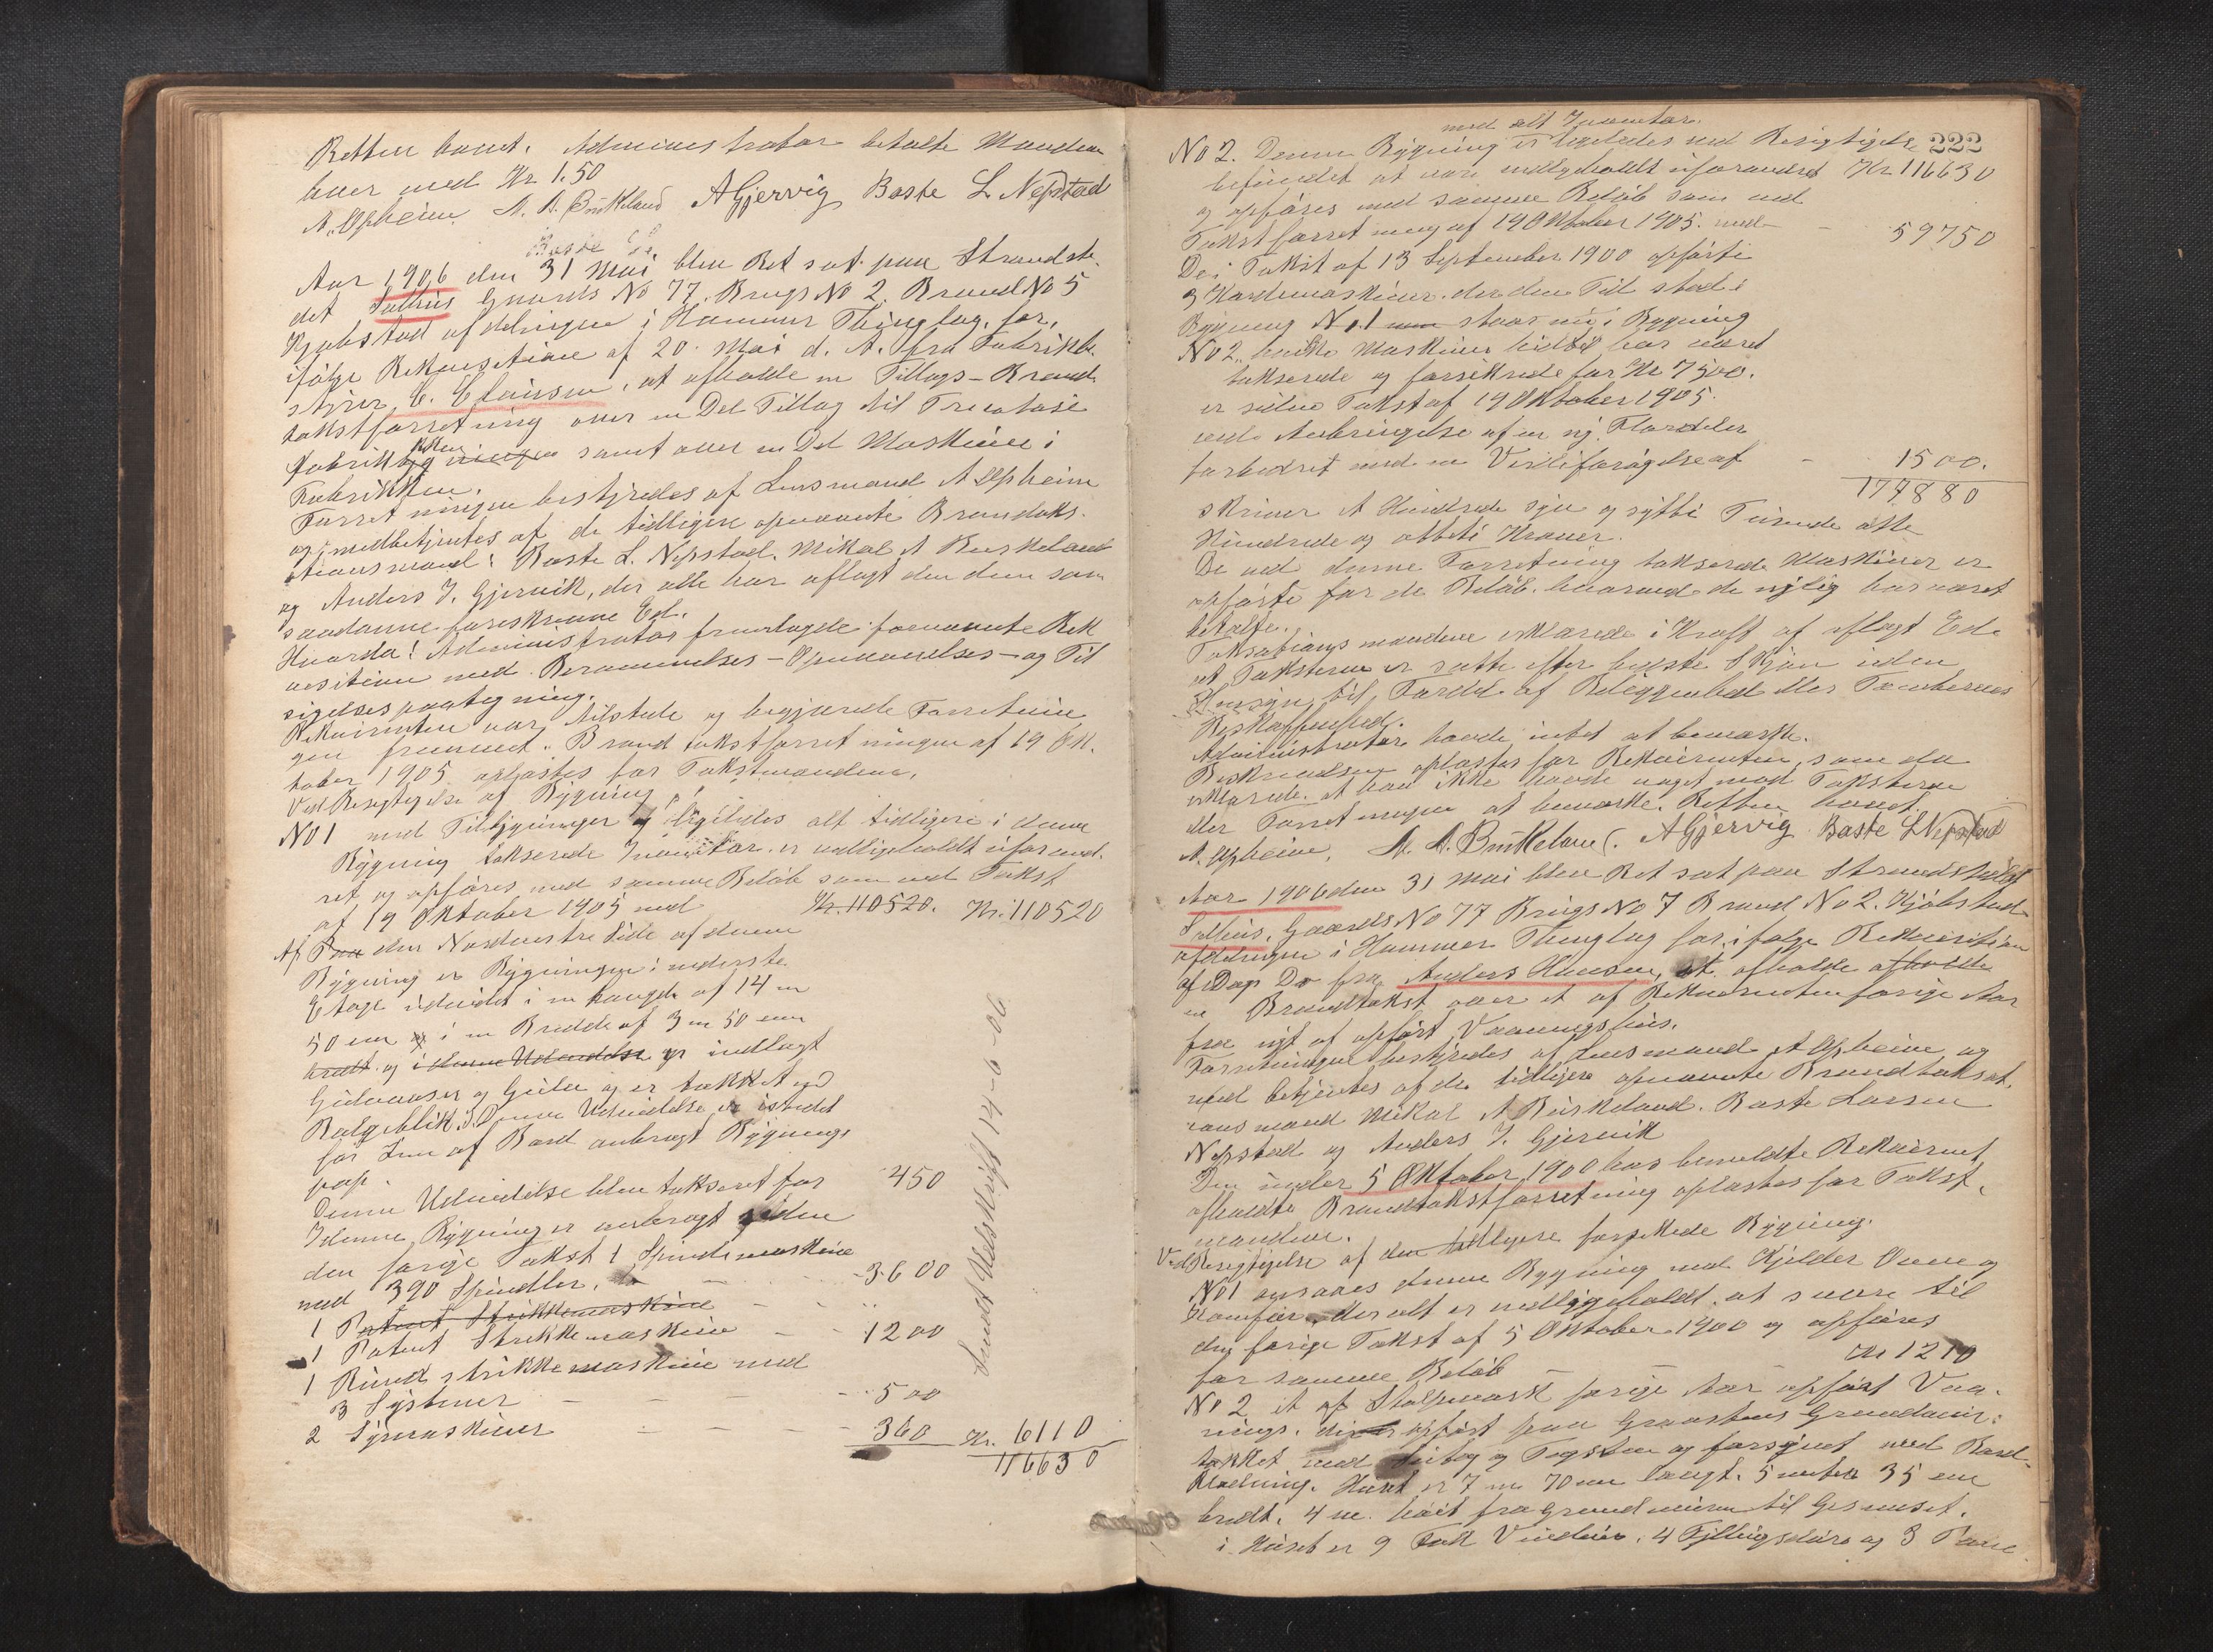 Retten hævet. Administrator betalte Mændene
hver med Kr 1.50
A. Opheim. M. A. Burkeland AGjervig Baste L Nepstad
Aar 1906 den 31 Mai blev Ret sat paa Strandste-
det Salhus Gaards No 77. Brugs No 2 Brand No 5
Kjøbstadafdelingen i Hammer Thinglag, for,
ifølge Rekvisition af 20 Mai d. A. fra Fabrikbe-
styrer C. Clausen, at afholde en Tillægs-Brand-
takstforretning over en Del Tillæg til Tricotage
Fabrikken samt over en Del Maskiner i
Fabrikken.
Forretningen bestyredes af Lensmand A Opheim
og medbetjentes af de tidligere opnævnte Brandtaks-
ationsmænd: Baste L. Nepstad, Mikal A Burkeland
og Anders J. Gjervik, der alle har aflagt den dem som
saadanne foreskrevne Ed.
Hvorda! Administrator fremlagde fornævnte Rek
visition med Berammelses-Opnævnelses- og Til
sigelsespaategning.
Rekvirenten var tilstede og begjærede Forretnin
gen fremmet. Brandtakstforretningen af 19 Ok-
tober 1905 oplæstes for Takstmændene.
Ved Besigtigelse af Bygning
No 1 med Tilbygninger og ligeledes alt tidligere i denne
Bygning takserede Inventar er vedligeholdt uforand-
ret og opføres med samme Beløb som ved Takst
af 19 Oktober 1905 med Kr. 110520. Kr. 110520
Af Paa den Nordvestre Side af denne
Bygning er Bygningen i nederste
Etage udvidet i en Længde af 14 m
50 cm og i en Bredde af 3 m 50 cm
bredt og i denne Udvidelse er indlagt
Gulvaaser og Gulve og er tækket med
Bølgeblik. I Denne Udvidelse er istedet
for Inv af Bord anbragt Bygnings
pap.
Denne Udvidelse blev takseret for 450
I denne Bygning er anbragt siden
den forige Takst 1 Spindemaskine
med 390 Spindler. - - 3600
1 Patent Strikkemaskine - -
1 Patent Strikkemaskine - - 1200
1 Rund strikkemaskine med
3 Systemer - - - 500
2 Symaskiner - - - 360 Kr. 6110
116630
Sendt Udskrift 14-6-06
222
med alt Inventar.
No 2. Denne Bygning er ligeledes ved Besigtigelse
befundet at være vedligeholdt uforandret Kr 116630
og opføres med samme Beløb som ved
Takstforretning af 19 Oktober 1905 med - 59750
De i Takst af 13 September 1900 opførte
3 Kardemaskiner der den Tid stod i
Bygning No. 1 staar nu i Bygning
No 2. hvilke Maskiner hidtil har været
takserede og forsikrede for Kr 7500.
er siden Takst af 19 Oktober 1905.
ved Anbringelse af en ny Flordeler
forbedret med en Værdiforøgelse af - 1500.
177880
skriver Et Hundrede syv og sytti Tusende otte
Hundrede og otteti Kroner.
De ved denne Forretning takserede Maskiner er
opførte for de Beløb, hvormed de nylig har været
betalte.
Taksationsmændene erklærede i Kraft af aflagt Ed
at Taksterne er satte efter bedste Skjøn uden
Hensyn til Fordel af Beliggenhed eller Tomternes
Beskaffenhed.
Administrator havde intet at bemærke.
Beskrivelsen oplæstes for Rekvirenten, som da
erklærede at han ikke havde noget mod Taksterne
eller Forretningen at bemærke. Retten hævet.
A. Opheim. M. A. Burkeland. AGjervig Baste L Nepstad
Aar 1906 den 31 Mai blev Ret sat paa Strandstedet
Salhus, Gaards No 77 Brugs No 7 Brand No 2. Kjøbstad-
afdelingen i Hammer Thinglag for, ifølge Rekvisition
af Dags Do fra Anders Hansen, at afholde afholde
en Brandtakst over et af Rekvirenten forige Aar
fra nyt af opført Vaaningshus.
Forretningen bestyredes af Lensmand A Opheim og
med betjentes af de tidligere opnævnte Brandtaksat-
ionsmænd Mikal A Burkeland. Baste Larsen
Nepstad og Anders J. Gjervik
Den under 5 Oktober 1900 hos bemeldte Rekvirent
afholdte Brandtakstforretning oplæstes for Takst-
mændene.
Ved Besigtigelse af den tidligere forsikrede Bygning.
No 1 ansaaes denne Bygning med Kjelder Ovne og
Komfur der alt er vedligeholdt, at svare til
den forige Takst af 5 Oktober 1900 og opføres
for samme Beløb - - - Kr 1210
No 2 et af Stolpeværk forige Aar opført Vaa-
nings. der er opført paa Graastens Grundmur:
tækket med Sutag og Tegsten og forsynet med Bord-
klædning. Huset er 7 m 70 cm langt. 5 meter 35 cm
bredt. 4 m. høit fra Grundmuren til Gesimset.
i Huset er 9 Fak Vinduer. 4 Fyllingsdøre og 3 Pane